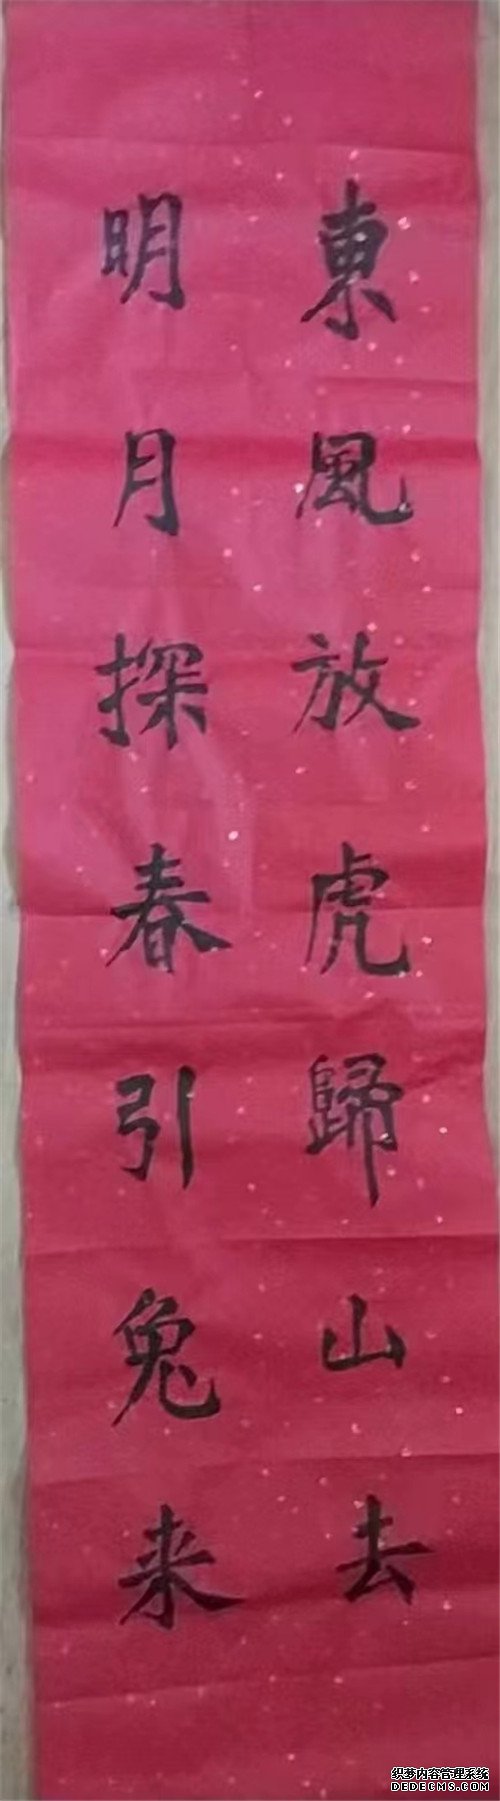 東風放虎歸山去
明月探春引兔来
织梦内容管理系统
DEDECMS.COM